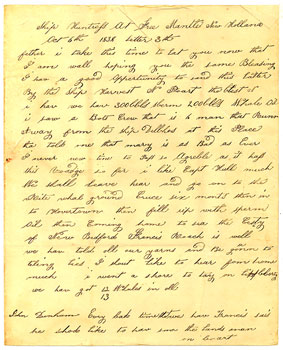 Ship Huntress At Free Mantle New Holland
Oct 6th 1838 Letter 3
father i take this time to let you now that
I am well hoping you the same Blessing
I had a good Opportunity to send this Letter
By the Ship Harvest N
i have we have 300bbls sperm 200bbls Whale Oil
i saw a Bots Crew that is 6 man that Runn
Away from the ship at this Place
he told me that mary is as Bad as Ever
I never now time to as it has
this so far i like Capt Hall much
We shall leave hear and go on to the
White what ground Cruce six months then in
to then fill up with sperm
Oil then Coming home to sea the City
of New Bedford Francis is well
we have told all our yarns and Be gonn to
tling lies I dont like to hear from home
much i want a share to
we have got 12 Whales in all
13
John Denham Every bad time have Francis sais
he shod like to have som the lands man
on Board